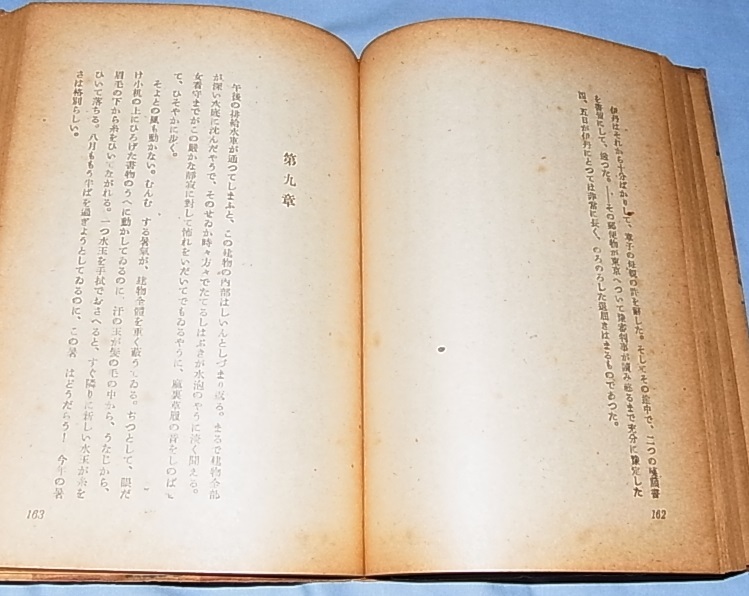 伊丹はそれから十分ばかりして、章子の母親の許を辭した。そしてその途中で、二つの嘆願書
を書留にして、送つた。――その郵便物が東京へついて豫審判事が讀み終るまで充分に豫定した
四、五日が伊丹にとつては非常に長く、のろのろした退屈きはまるものであつた。
162
第九章
午後の排給水車が通つてしまふと、この建物の内部はしいんとしづまり返る。まるで建物全部
が深い水底に沈んだやうで、そのせゐか時々方々でたてるしはぶきが水泡のやうに淡く聞える。
女看守までがこの嚴かな靜寂に對して怖れをいだいてでもゐるやうに、麻裏草履の音をしのばせ
て、ひそやかに歩く。
そよとの風も動かない。むんむ する暑氣が、建物全體を重く蔽うてゐる。ぢつとして、眼だ
け小机の上にひろげた書物のうへに動かしてゐるのに、汗の玉が髮の毛の中から、うなじから、
眉毛の下から糸をひいてながれる。一つ水玉を手拭でおさへると、すぐ隣りに新しい水玉が糸を
ひいて落ちる。八月ももう半ばを過ぎようとしてゐるのに、この暑 はどうだらう！ 今年の暑
さは格別らしい。
163